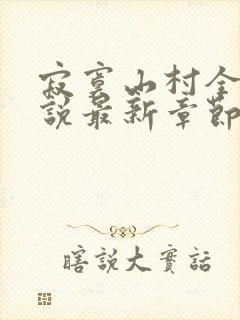 寂寞山村全
說最新章節
瞎說大實話